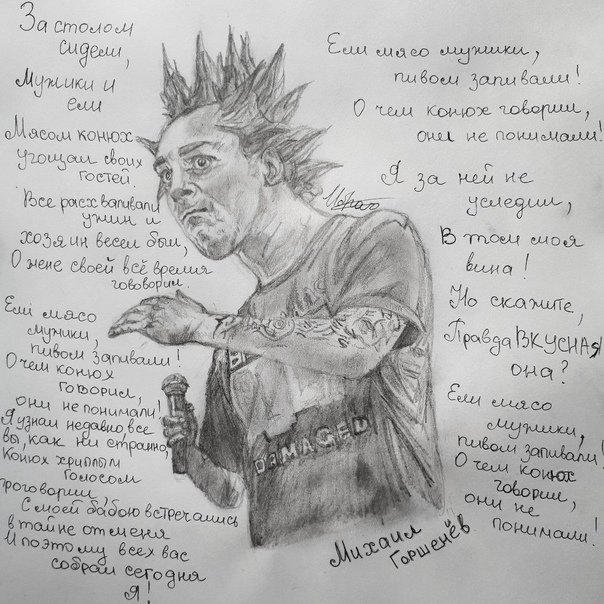 За столом
сидели,
Мужики и
ели
Мясом конюх
угощал своих
гостей.
Все расхваливали
ужин и
хозяин весел был,
О жене своей всё время
гововорил.
Ели мясо
мужики,
пивом запивали!
О чем конюх
говорил,
они не понимали!
Я узнал недавно все
вы, как ни странно,
Конюх хриплым
голосом
проговорил,
С моей бабою встречались
в тайне от меня
И поэтому всех вас
собрал сегодня
Я!
Ели мясо мужики,
пивом запивали!
О чем конюх говорил,
они не понимали!
Я за ней не
уследил,
В том моя
вина!
Но скажите,
Правда ВКУСНАЯ
она?
Ели мясо
мужики,
пивом запивали!
О чем конюх
говорил,
они не
понимали!
DAMAGED
Михаил
Горшенёв